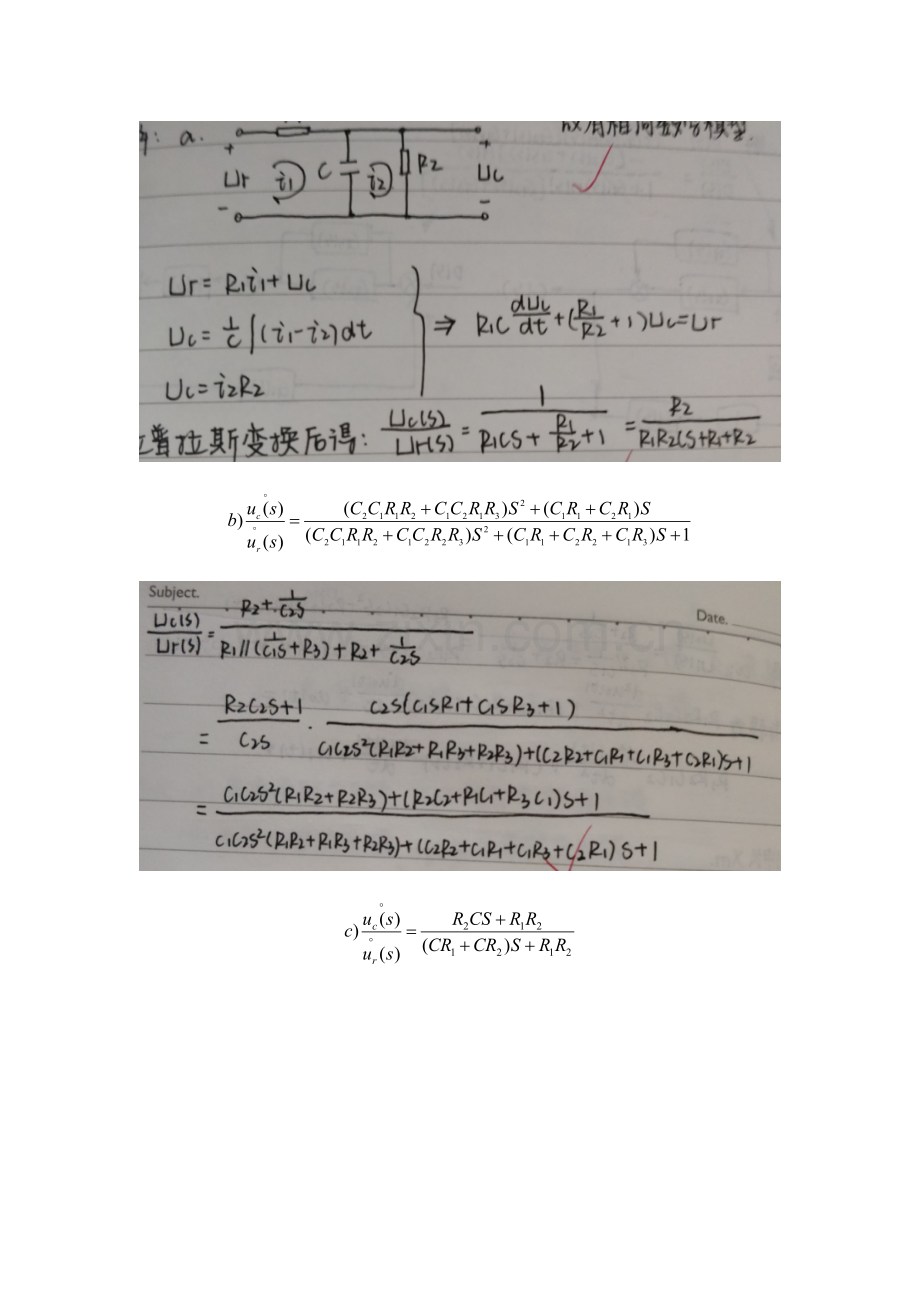 a.
成有相同数学模型.
+ +
Ur i1 C i2 R2 Uc
- -
Ur = R1i1 + Uc
Uc = 1/C ∫(i1-i2)dt ⇒ R1C dUc/dt + (R1/R2 + 1)Uc = Ur
Uc = i2R2
普拉斯变换后得: Uc(s)/Ur(s) = 1/(R1CS + R1/R2 + 1) = R2/(R1R2CS+R1+R2)
b) u°c(s)/u°r(s) = ((C2C1R1R2 + C1C2R1R3)S² + (C1R1 + C2R1)S)/((C2C1R1R2 + C1C2R2R3)S² + (C1R1 + C2R2 + C1R3)S + 1)
Subject.
Date.
Uc(s)/Ur(s) = (R2 + 1/C2S)/(R1//(1/C1S + R3) + R2 + 1/C2S)
= (R2C2S+1)/C2S · C2S(C1SR1 + C1SR3 + 1)/(C1C2S²(R1R2+R1R3+R2R3)+(C2R2+C1R1+C1R3+C2R1)S+1)
= (C1C2S²(R1R2+R2R3)+(R2C2+R1C1+R3C1)S+1)/(C1C2S²(R1R2+R1R3+R2R3)+(C2R2+C1R1+C1R3+C2R1)S+1)
c) u°c(s)/u°r(s) = (R2CS + R1R2)/((CR1 + CR2)S + R1R2)